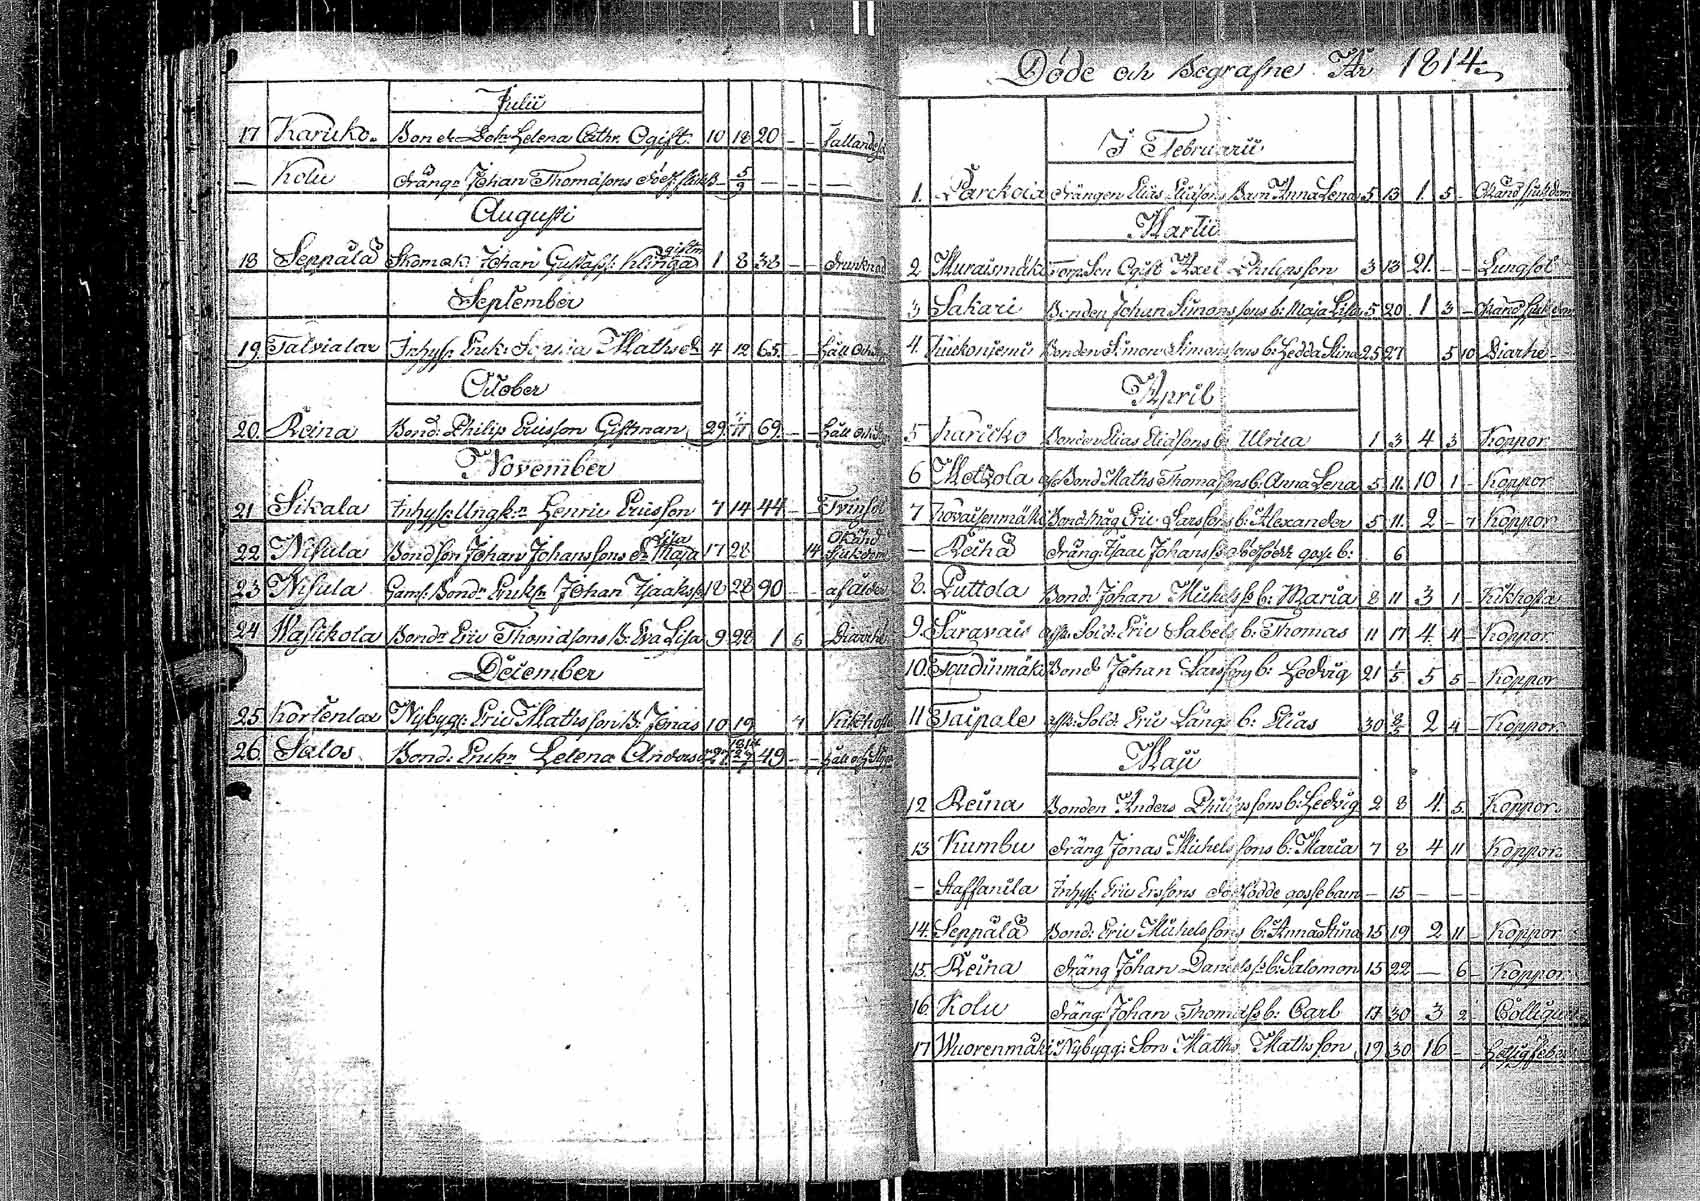 Julii
17 Karicko. Bond. Dotr Helena Cathr. Ogift. 10 18 20 - - fallandesot
- Kolu Dräng: Johan Thomasons - 5/9 - - - -
Augusti
18 Seppälä Skomak: Johan Gustafss: Klinga giftm 1 8 38 - - Drunknad
September
19. Talviala Inhys: Enk: Maths dr 4 12 65. - - Håll och
October
20. Reina Bond: Philip Ericsson Giftman 29. 69. - - Håll och
November
21 Sikala Inhyss: Ungk: Henric Ericsson 7 14 44 - - Tvinsot
22. Nisula Bondson Johan Johanssons dr Maja Lisa 17 28 14 Okänd sjukdom
23 Nisula Gaml: Bond: Johan Isaakss 18 28 90 - - af ålder
24 Wasikola Bond: Eric Thomasons B: Eva Lisa 9 28 1 6 Diarrhe
December
25. Kortenlax Nybygg: Eric Mathsson B: Jonas 10 19 Kikhosta
26. Salos Bond: Enk: Helena Anders 49 - - Håll och
Döde och Begrafne År 1814.
I Februarii
1. Parckoia Drängen Elias Eliasons Barn Anna Lena 5 13 1. 5 - Okänd sjukdom
Martii
2 Muraismäki Torp: Son Ogift Axel Philipsson 3 13 21. - - Lungsot
3 Sakari Bonden Johan Simonssons b: Maja Lisa 5 20 1 3 - Okänd sjukdom
4. Bonden Simon Simonssons b: Hedda Stina 25 27 5 10 Diarhe
April
5 Karicko Bonden Elias Eliasons b: Ulrica 1 3 4 3 Koppor
6 Metzola Bond Maths Thomassons b. Anna Lena 5 11. 10 1 - Koppor
7 Hovaisenmäki Bondmåg Eric Larssons b: Alexander 5 11. 2 - 7 Koppor
- Reinä Dräng: Isaac Johanss: gosse b: 6
8. Puttola Bond: Johan Michelss b: Maria 8 11 3 1 - Kikhosta
9. Saravais afsk: Sold: Eric Sabels b: Thomas 11 17 4 4 - Koppor
10. Bond: Johan Larssons b: Hedvig 21 1/5 5 5 - Koppor
11 Taipale afsk: Sold: Eric Långs b: Elias 30 8/5 2 4 - Koppor
Maji
12. Reina Bonden Anders Philipssons b: Hedvig 2 8 4. 5. Koppor.
13 Kumbu Dräng Jonas Michelssons b: Maria 7 8 4 11 Koppor.
- Staffanila Inhys: Eric Erssons Dödfödde gossebarn - 15 - - -
14. Seppälä Bond: Eric Michelssons b: Anna Stina 15 19 2 11 - Koppor
15. Reina Dräng Johan Danielss b: Salomon 15 22 - 6 - Koppor
16. Kolu Dräng: Johan Thomass b: Carl 17 30 3 2 Colliqu
17 Wuorenmäki Nybygg: Son Maths Mathsson 19 30 16 - - Hettig feber